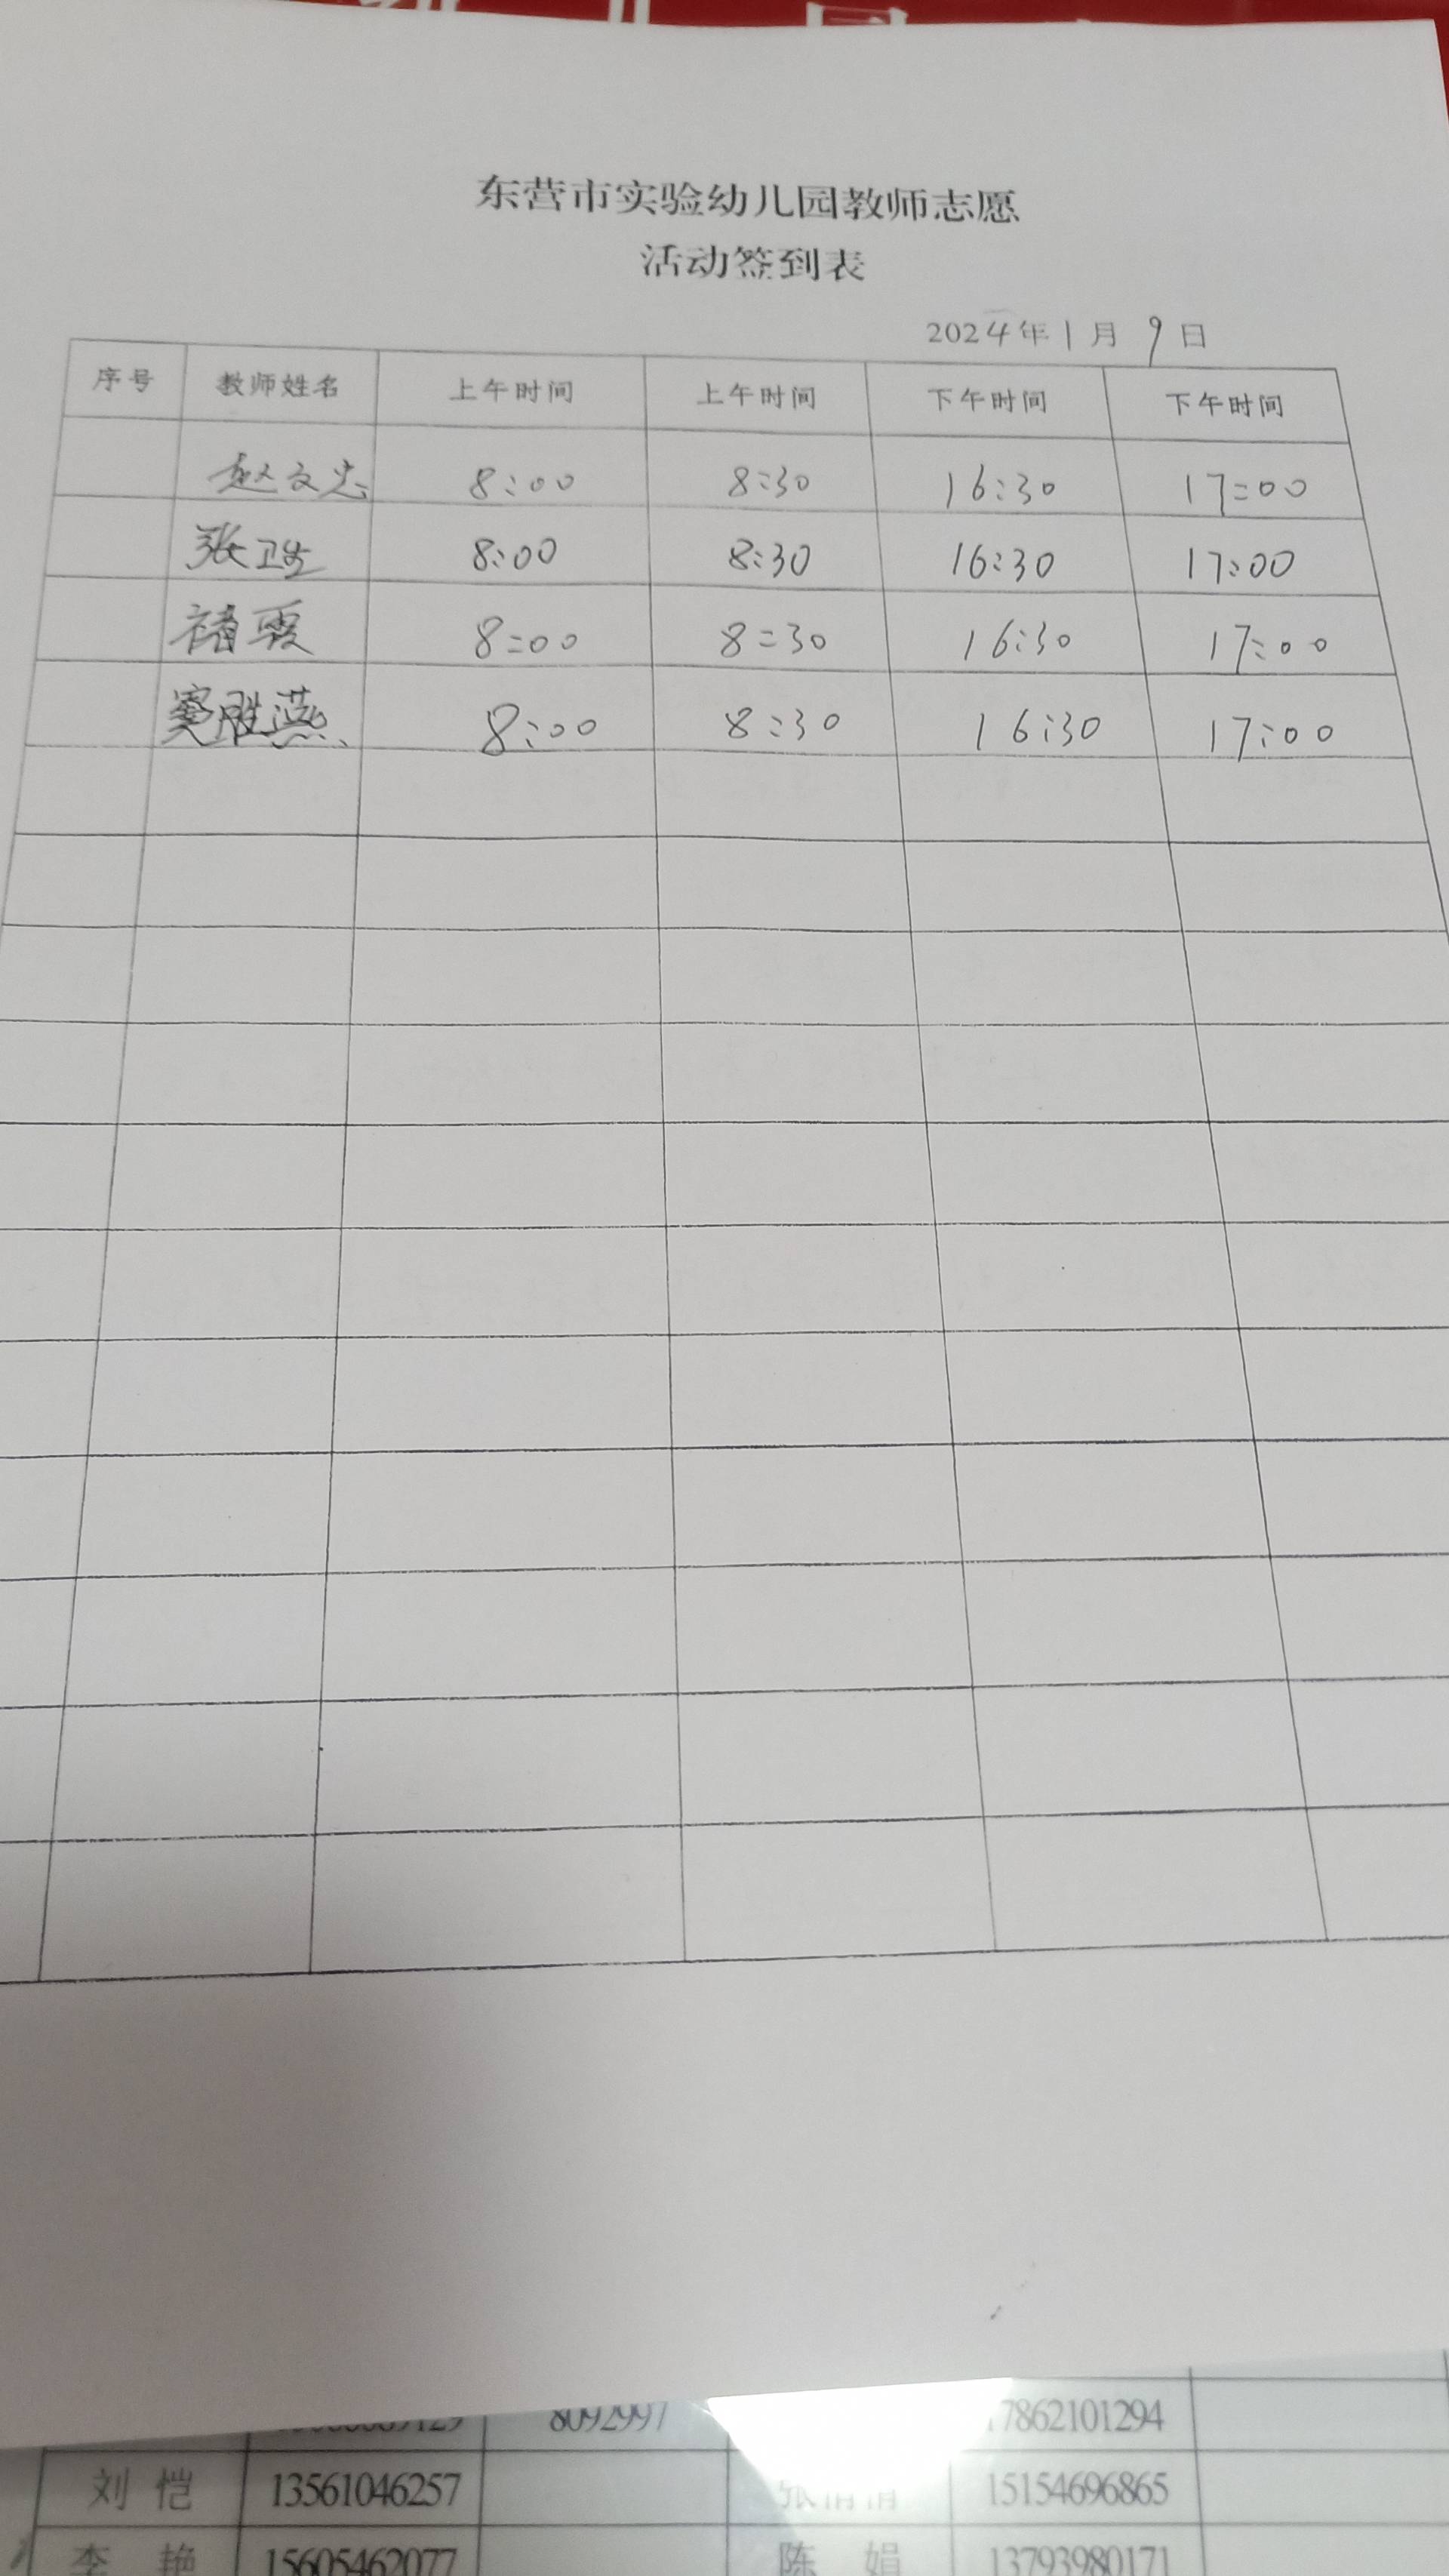 东营市实验幼儿园教师志愿
活动签到表
2024年1月9日
序号 教师姓名 上午时间 上午时间 下午时间 下午时间
赵文忠 8:00 8:30 16:30 17:00
张卫生 8:00 8:30 16:30 17:00
褚霞 8:00 8:30 16:30 17:00
窦胜燕 8:00 8:30 16:30 17:00
8092997 17862101294
刘恺 13561046257 张倩倩 15154696865
李艳 15605462077 陈娟 13793980171